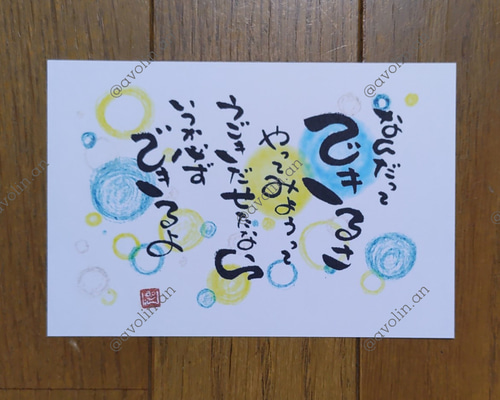 なんだって
できるさ
やってみようって
うごきだせたなら
いつか必ず
できるよ
@avolin.an
@avolin.an
@avolin.an
@avolin.an
@avolin.an